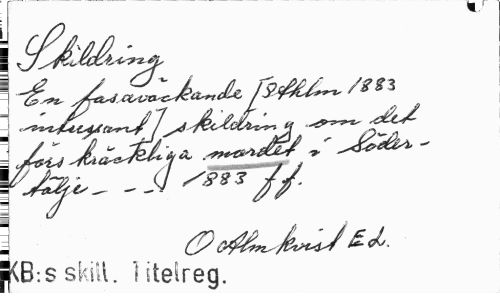 Skildring
En fasaväckande [Sthlm 1883
intressant] skildring om det
förskräckliga mordet i Söder-
tälje - - - 1883 ff.
O Almkvist Ed.
KB:s skill. Titelreg.